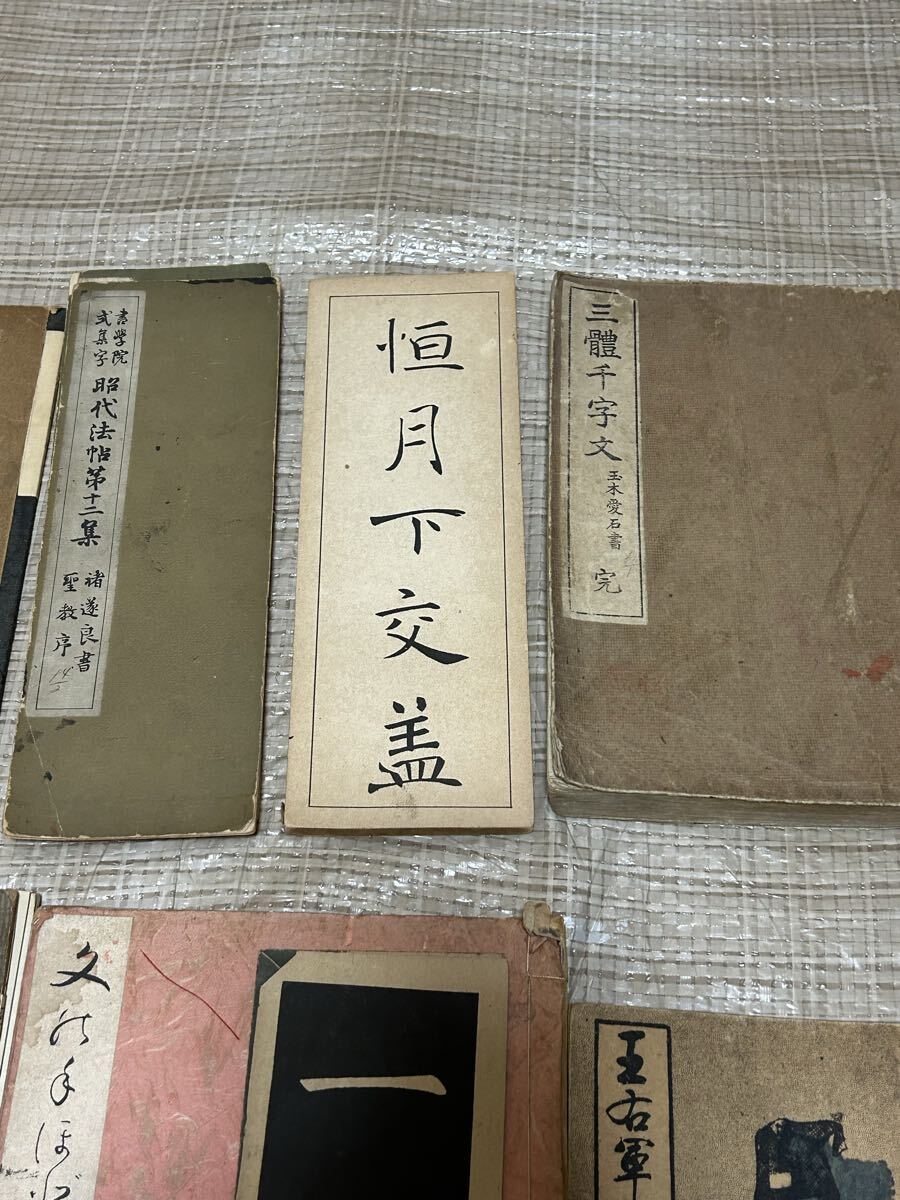 書學院
式集字
昭代法帖第十二集
褚遂良書
聖教序
14/2
恒月下交盖
三體千字文
玉木愛石書
完
文の手ほど
一
王右軍